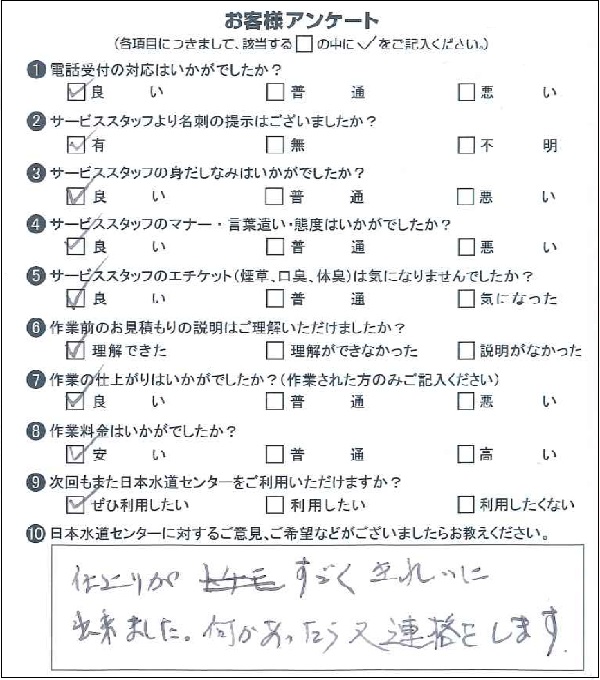 お客様アンケート
(各項目につきまして、該当する□の中に✓をご記入ください。)
❶ 電話受付の対応はいかがでしたか?
☑良い □普通 □悪い
❷ サービススタッフより名刺の提示はございましたか?
☑有 □無 □不明
❸ サービススタッフの身だしなみはいかがでしたか?
☑良い □普通 □悪い
❹ サービススタッフのマナー・言葉遣い・態度はいかがでしたか?
☑良い □普通 □悪い
❺ サービススタッフのエチケット(煙草、口臭、体臭)は気になりませんでしたか?
☑良い □普通 □気になった
❻ 作業前のお見積もりの説明はご理解いただけましたか?
☑理解できた □理解ができなかった □説明がなかった
❼ 作業の仕上がりはいかがでしたか?(作業された方のみご記入ください)
☑良い □普通 □悪い
❽ 作業料金はいかがでしたか?
☑安い □普通 □高い
❾ 次回もまた日本水道センターをご利用いただけますか?
☑ぜひ利用したい □利用したい □利用したくない
❿ 日本水道センターに対するご意見、ご希望などがございましたらお教えください。
仕上りが すごく きれいに
出来ました。何かあったら又連絡をします.